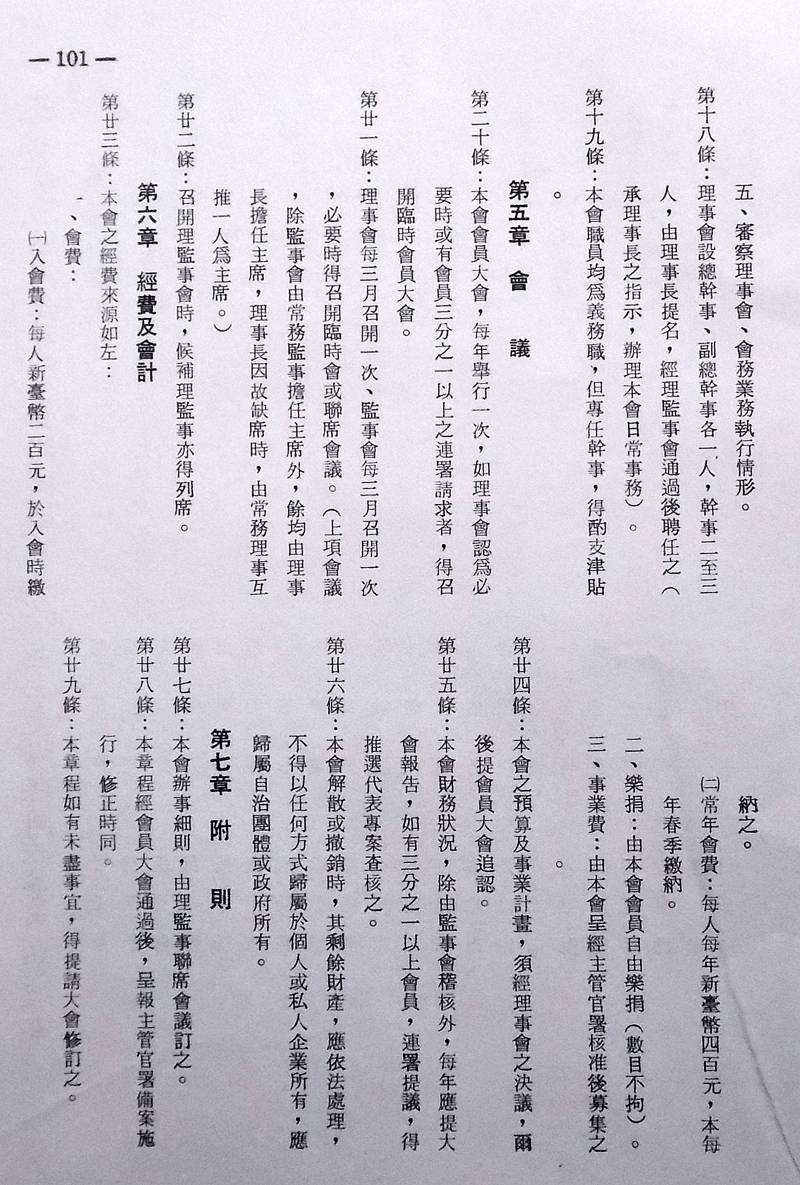 — 101 —
五、審察理事會、會務業務執行情形。
第十八條：理事會設總幹事、副總幹事各一人，幹事二至三
人，由理事長提名，經理監事會通過後聘任之（
承理事長之指示，辦理本會日常事務）。
第十九條：本會職員均爲義務職，但專任幹事，得酌支津貼
。
第五章　會　議
第二十條：本會會員大會，每年舉行一次，如理事會認爲必
要時或有會員三分之一以上之連署請求者，得召
開臨時會員大會。
第廿一條：理事會每三月召開一次、監事會每三月召開一次
，必要時得召開臨時會或聯席會議。（上項會議
，除監事會由常務監事擔任主席外，餘均由理事
長擔任主席，理事長因故缺席時，由常務理事互
推一人爲主席。）
第廿二條：召開理監事會時，候補理監事亦得列席。
第六章　經費及會計
第廿三條：本會之經費來源如左：
一、會費：
㈠入會費：每人新臺幣二百元，於入會時繳
納之。
㈡常年會費：每人每年新臺幣四百元，本每
年春季繳納。
二、樂捐：由本會會員自由樂捐（數目不拘）。
三、事業費：由本會呈經主管官署核准後募集之
。
第廿四條：本會之預算及事業計畫，須經理事會之決議，爾
後提會員大會追認。
第廿五條：本會財務狀況，除由監事會稽核外，每年應提大
會報告，如有三分之一以上會員，連署提議，得
推選代表專案查核之。
第廿六條：本會解散或撤銷時，其剩餘財產，應依法處理，
不得以任何方式歸屬於個人或私人企業所有，應
歸屬自治團體或政府所有。
第七章　附　則
第廿七條：本會辦事細則，由理監事聯席會議訂之。
第廿八條：本章程經會員大會通過後，呈報主管官署備案施
行，修正時同。
第廿九條：本章程如有未盡事宜，得提請大會修訂之。